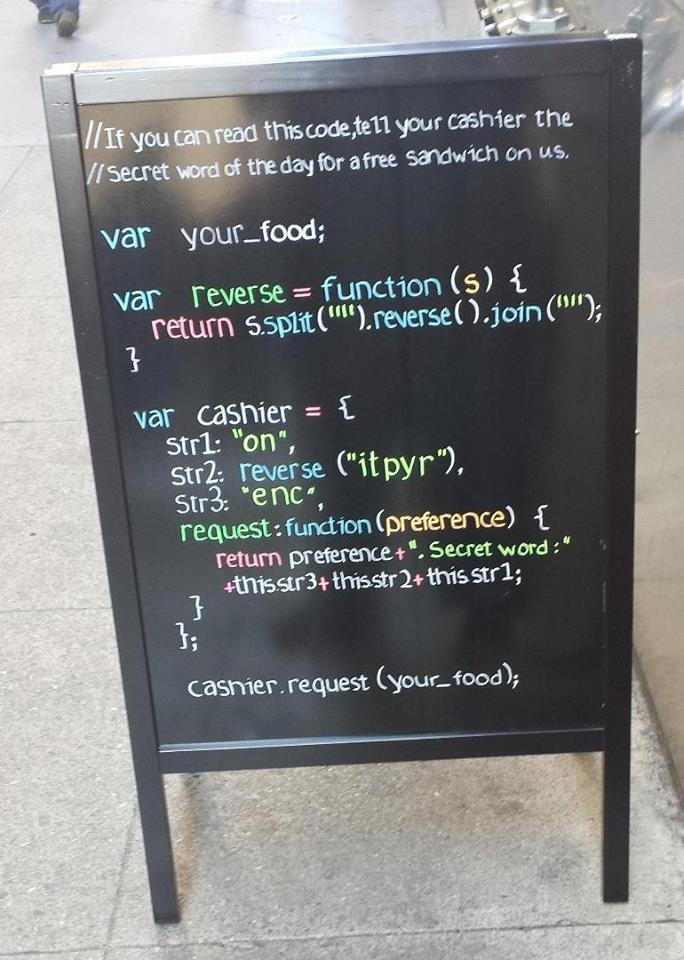 //If you can read this code,tell your cashier the
// Secret word of the day for a free sandwich on us.
var your_food;
var reverse = function (s) {
return s.split("").reverse().join("");
}
var cashier = {
Str1: "on",
Str2: reverse ("itpyr"),
Str3: "enc",
request: function (preference) {
return preference + ". Secret word : "
+this.str3+this.str2+this.str1;
}
};
cashier.request (your_food);